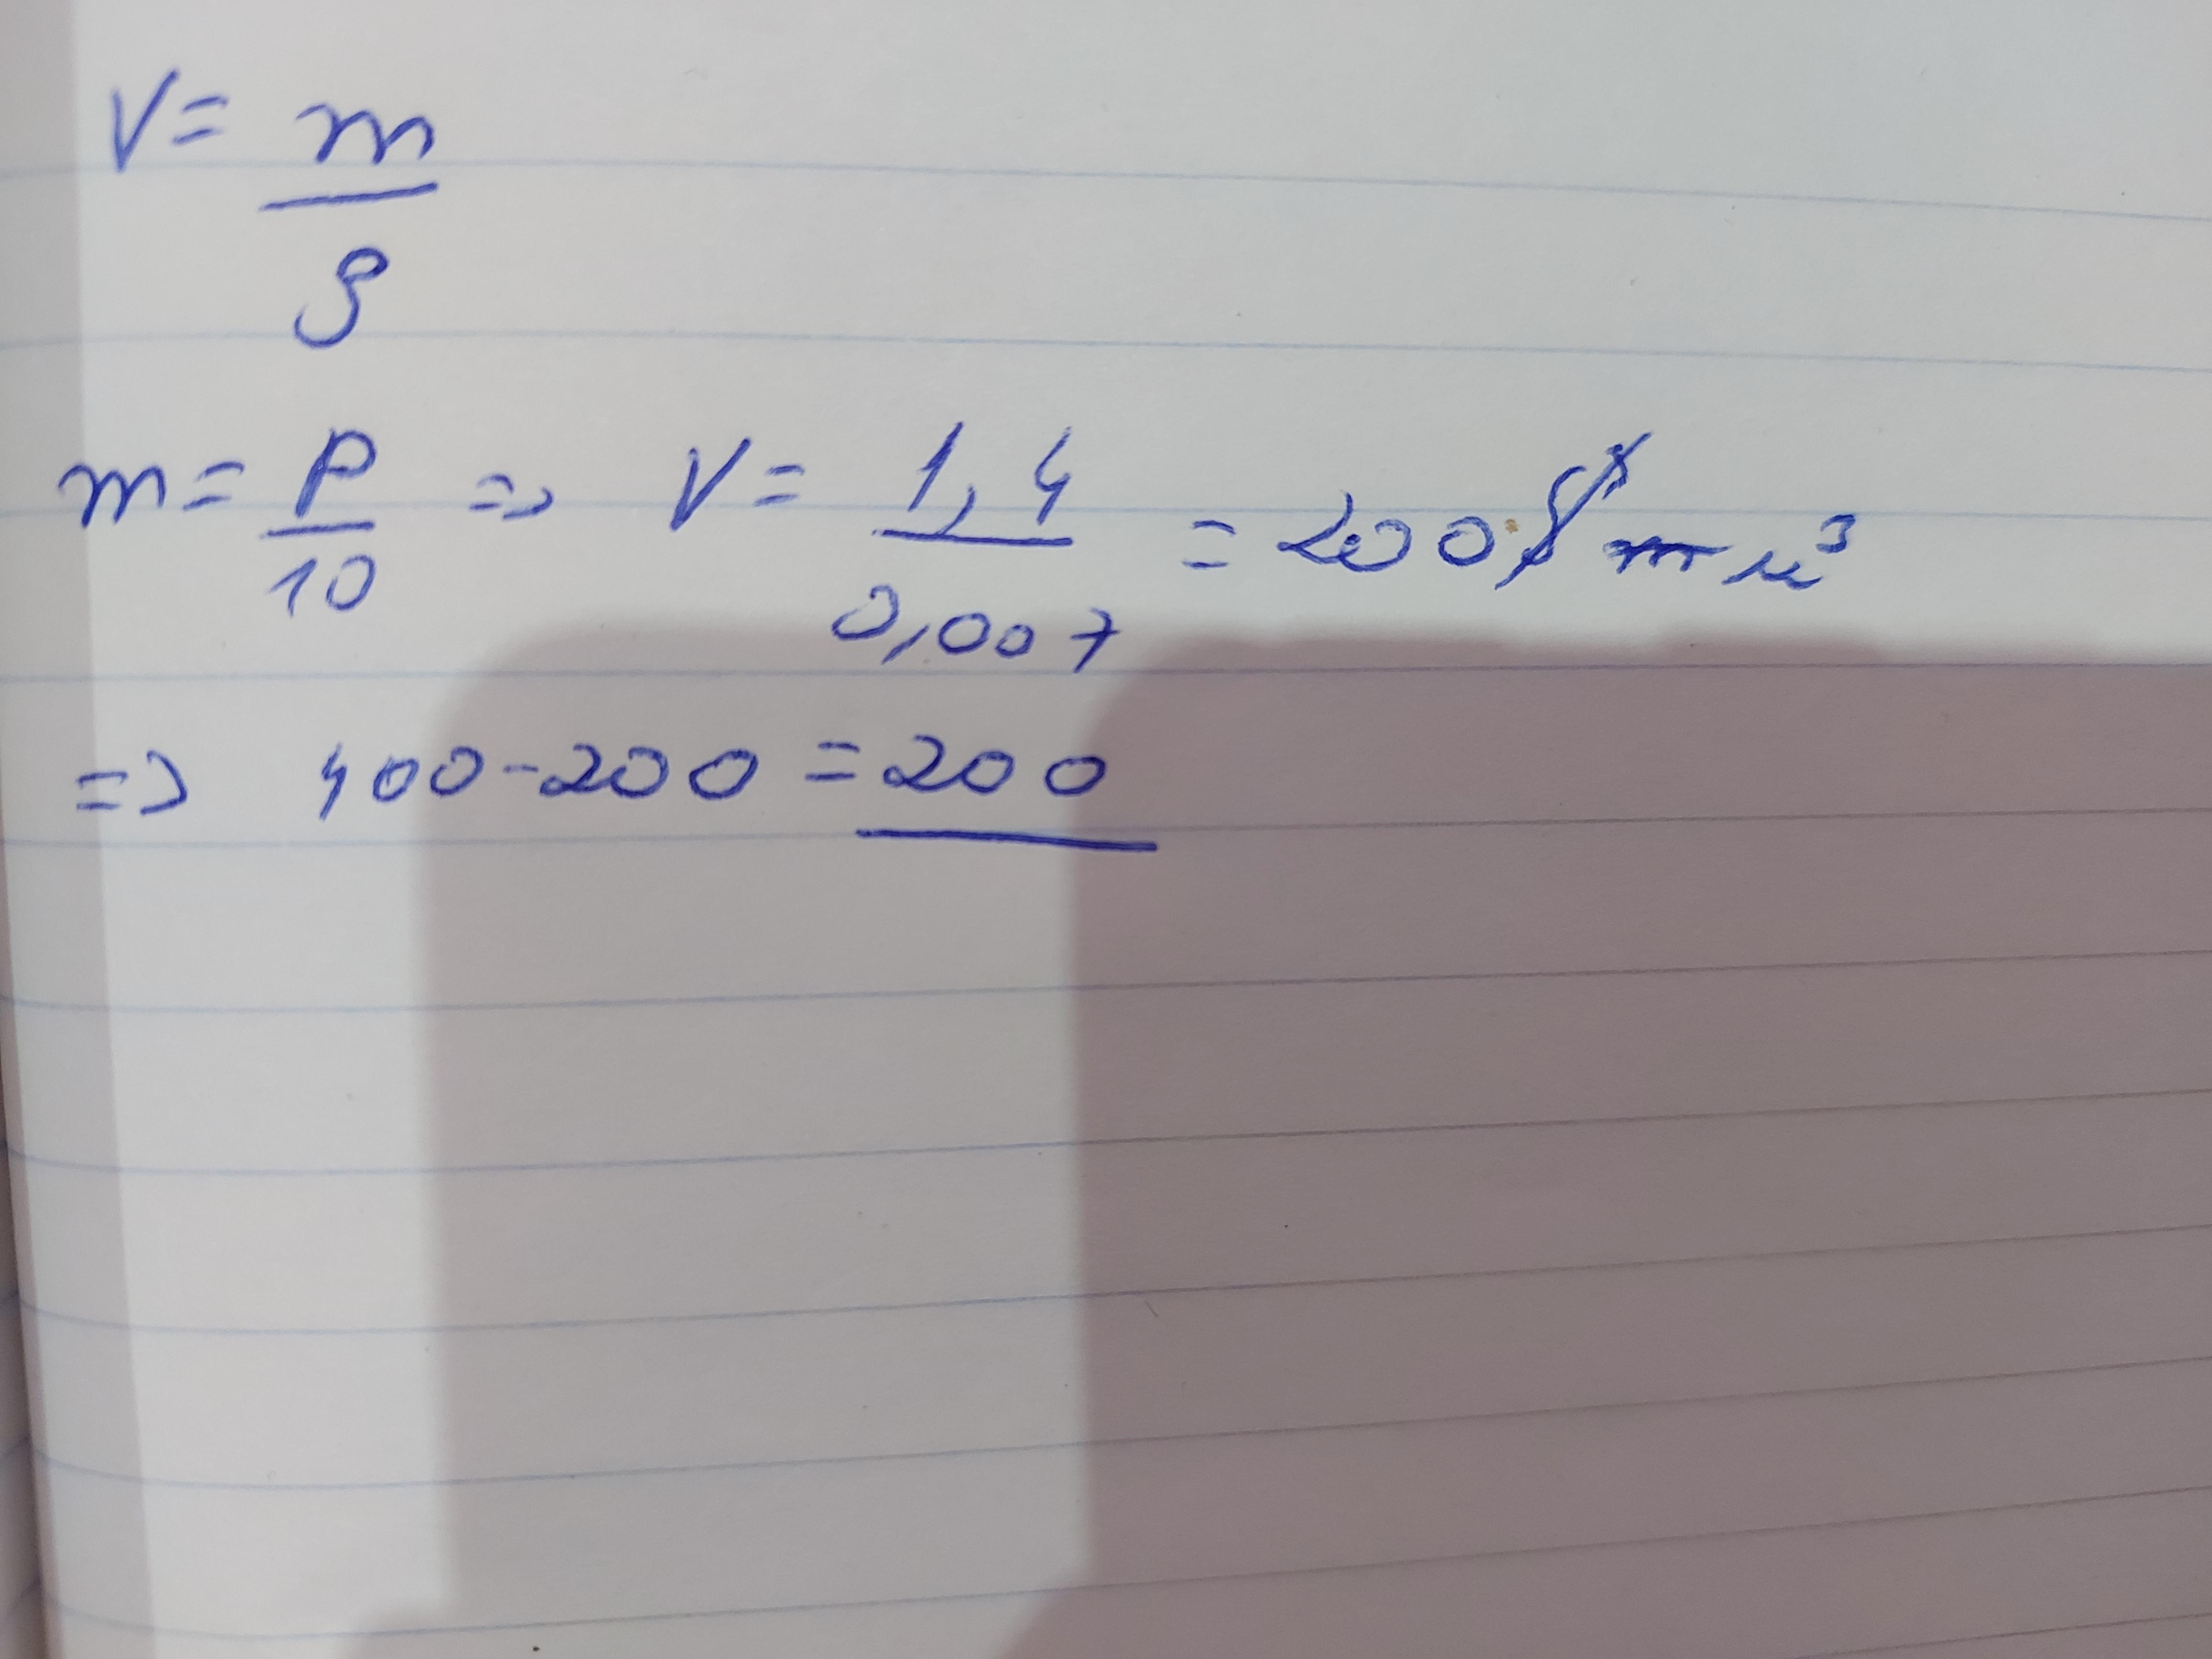 V = m / ρ
m = P / 10 => V = 1,4 / 0,007 = 200 м³
=> 400 - 200 = 200